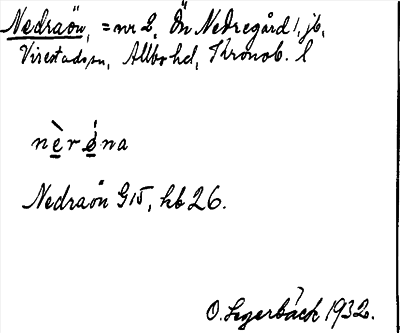 Nedraön, = nr 2, Ön Nedregård 1, jb,
Virestads sn, Allbo hd, Kronob. l
nèr éna
Nedraön G15, hb 26.
O. Segerbäck 1932.